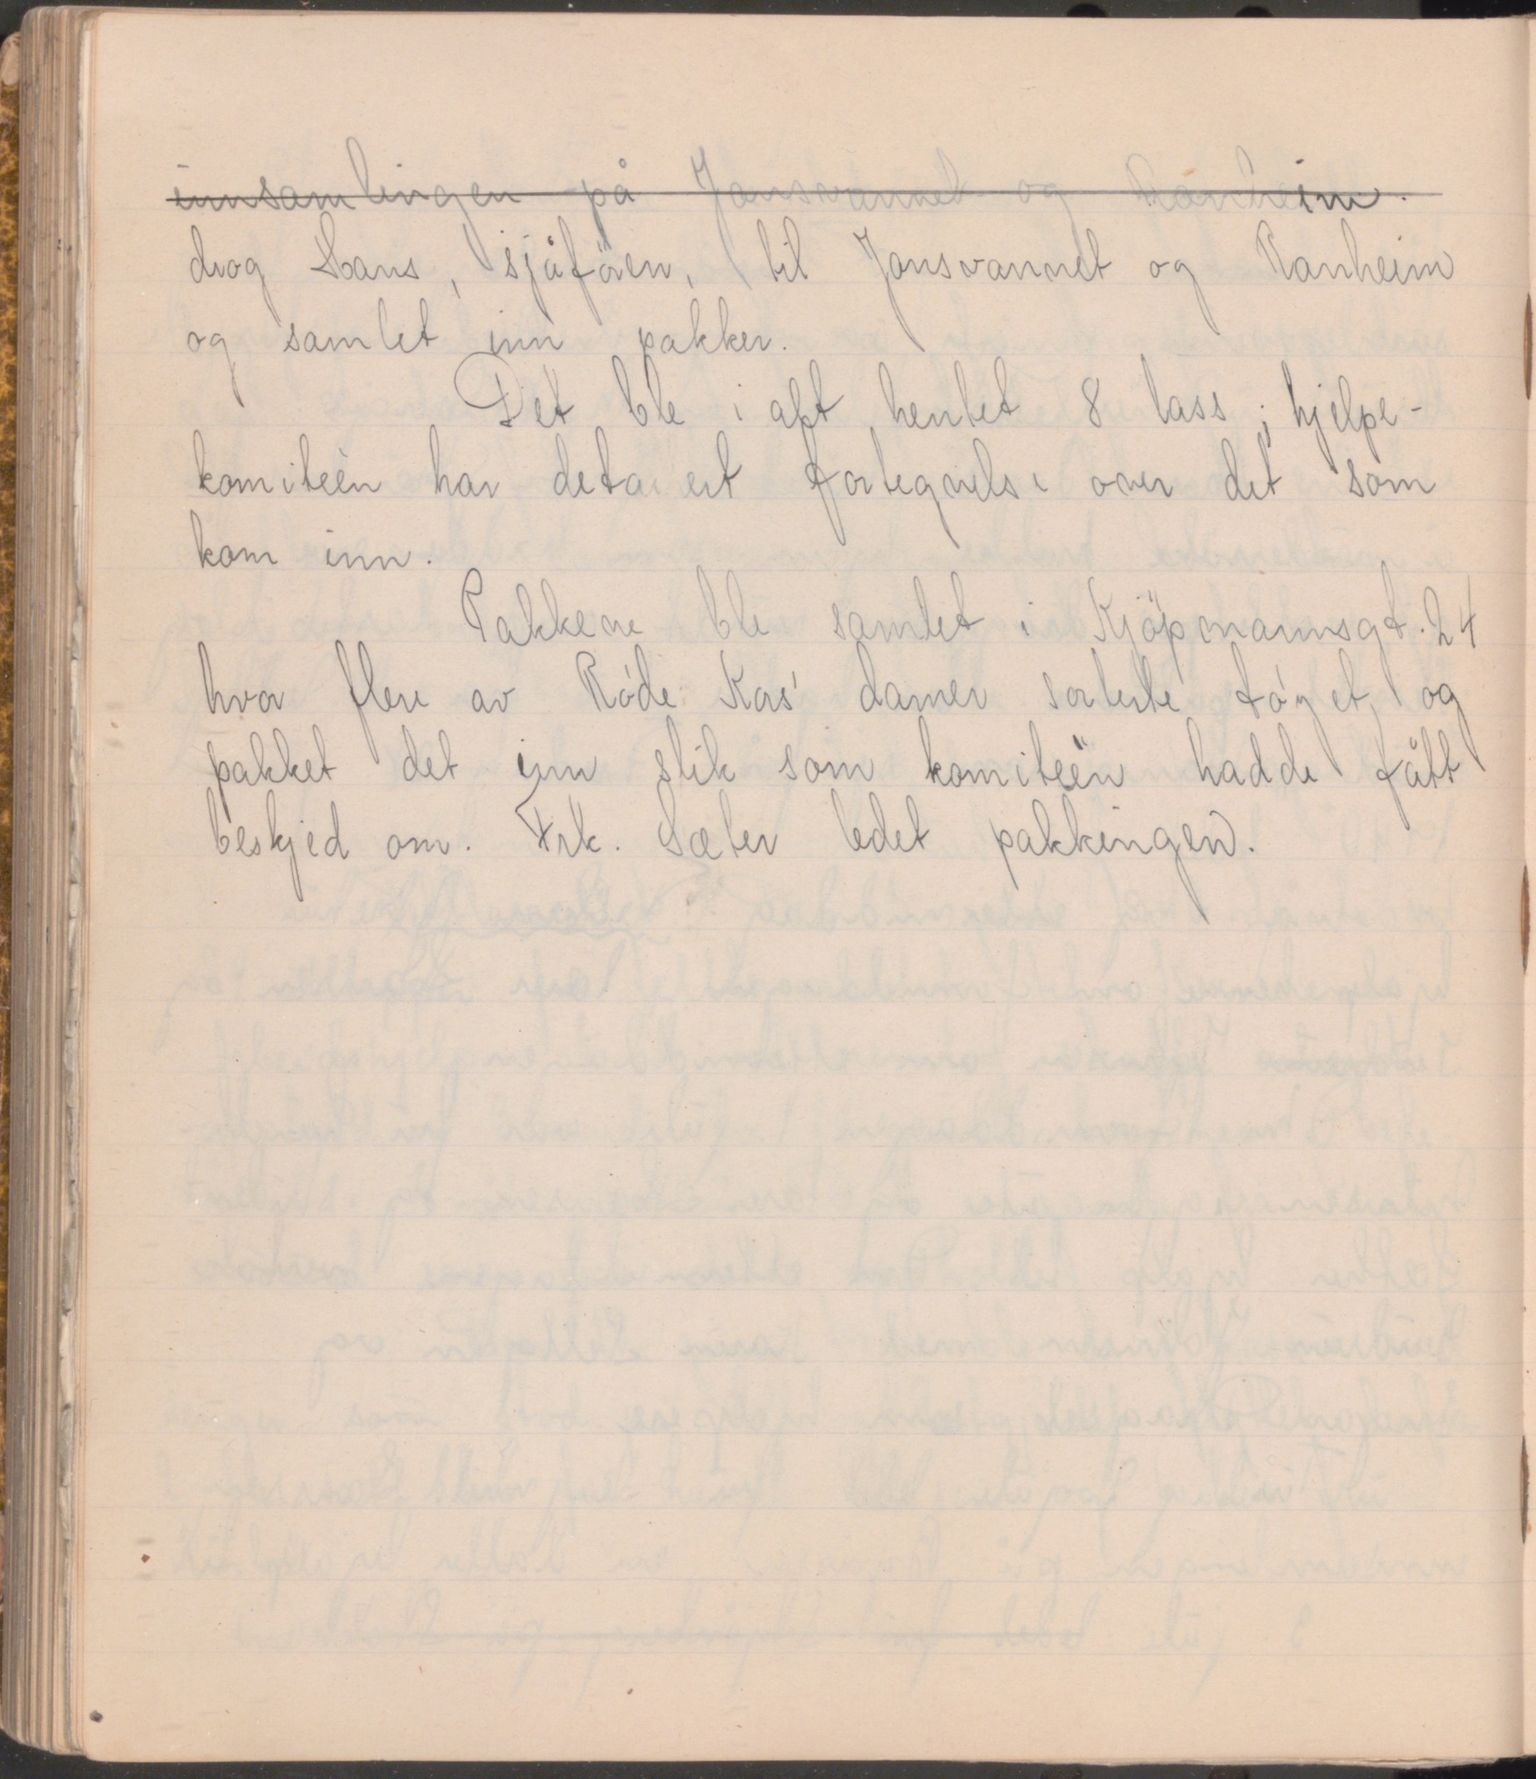 innsamlingen på Jonsvannet og Ranheim.
drog Sans, sjåfören, til Jonsvannet og Ranheim
og samlet inn pakker.
Det ble i alt hentet 8 lass; hjelpe-
komitéen har detaljert fortegnelse over det som
kom inn.
Pakkene ble samlet i Kjöpmannsgt. 24
hvor flere av Röde Kors' damer sorterte töyet, og
pakket det inn slik som komitéen hadde fått
beskjed om. Frk. Sæter ledet pakkingen.